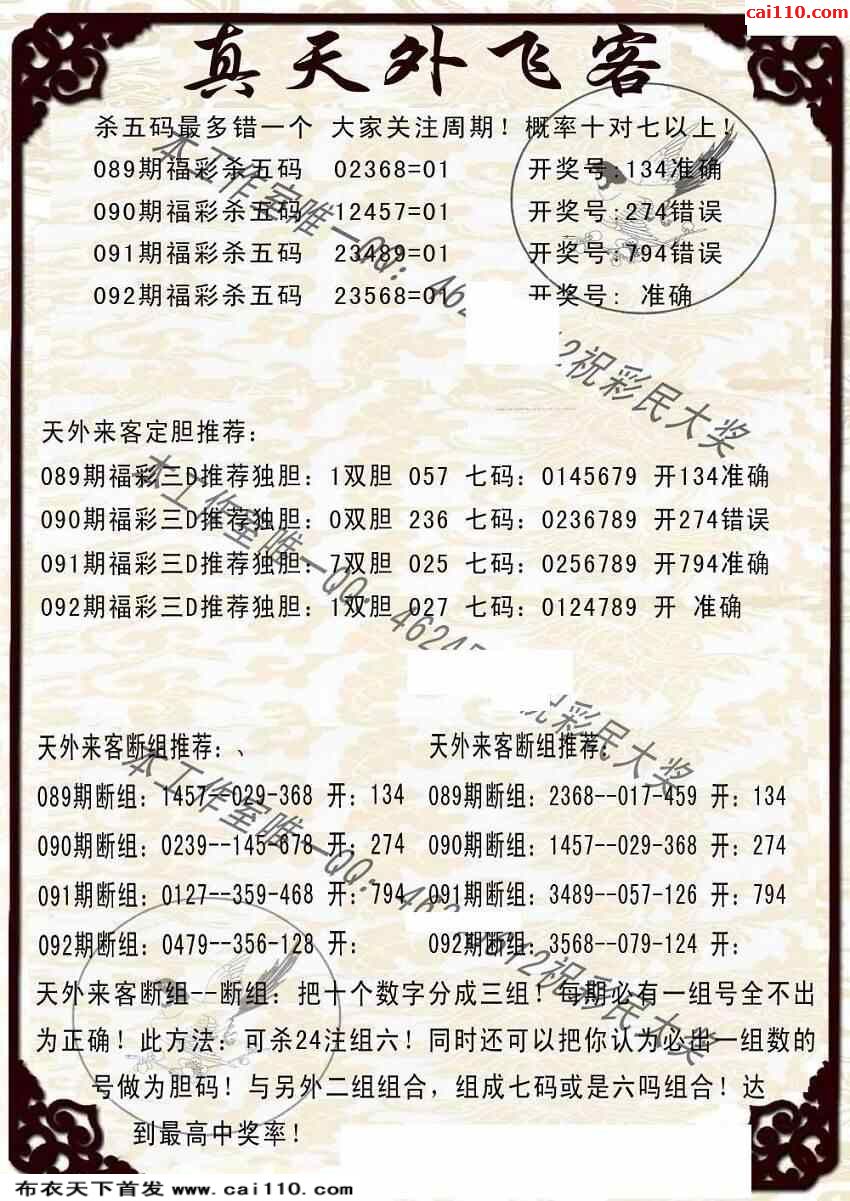 cai110.com
真天外飞客
杀五码最多错一个 大家关注周期！概率十对七以上！
089期福彩杀五码 02368=01 开奖号:134准确
090期福彩杀五码 12457=01 开奖号:274错误
091期福彩杀五码 23489=01 开奖号:794错误
092期福彩杀五码 23568=01 开奖号: 准确
天外来客定胆推荐：
089期福彩三D推荐独胆：1双胆 057 七码：0145679 开134准确
090期福彩三D推荐独胆：0双胆 236 七码：0236789 开274错误
091期福彩三D推荐独胆：7双胆 025 七码：0256789 开794准确
092期福彩三D推荐独胆：1双胆 027 七码：0124789 开 准确
天外来客断组推荐：、 天外来客断组推荐：
089期断组：1457--029-368 开：134 089期断组：2368--017-459 开：134
090期断组：0239--145-678 开：274 090期断组：1457--029-368 开：274
091期断组：0127--359-468 开：794 091期断组：3489--057-126 开：794
092期断组：0479--356-128 开： 092期断组：3568--079-124 开：
天外来客断组--断组：把十个数字分成三组！每期必有一组号全不出
为正确！此方法：可杀24注组六！同时还可以把你认为必出一组数的
号做为胆码！与另外二组组合，组成七码或是六吗组合！达
到最高中奖率！
本工作室唯一QQ：462 2祝彩民大奖
本工作室唯一QQ：4624 祝彩民大奖
本工作室唯一QQ：462 2祝彩民大奖
布衣天下首发 www.cai110.com